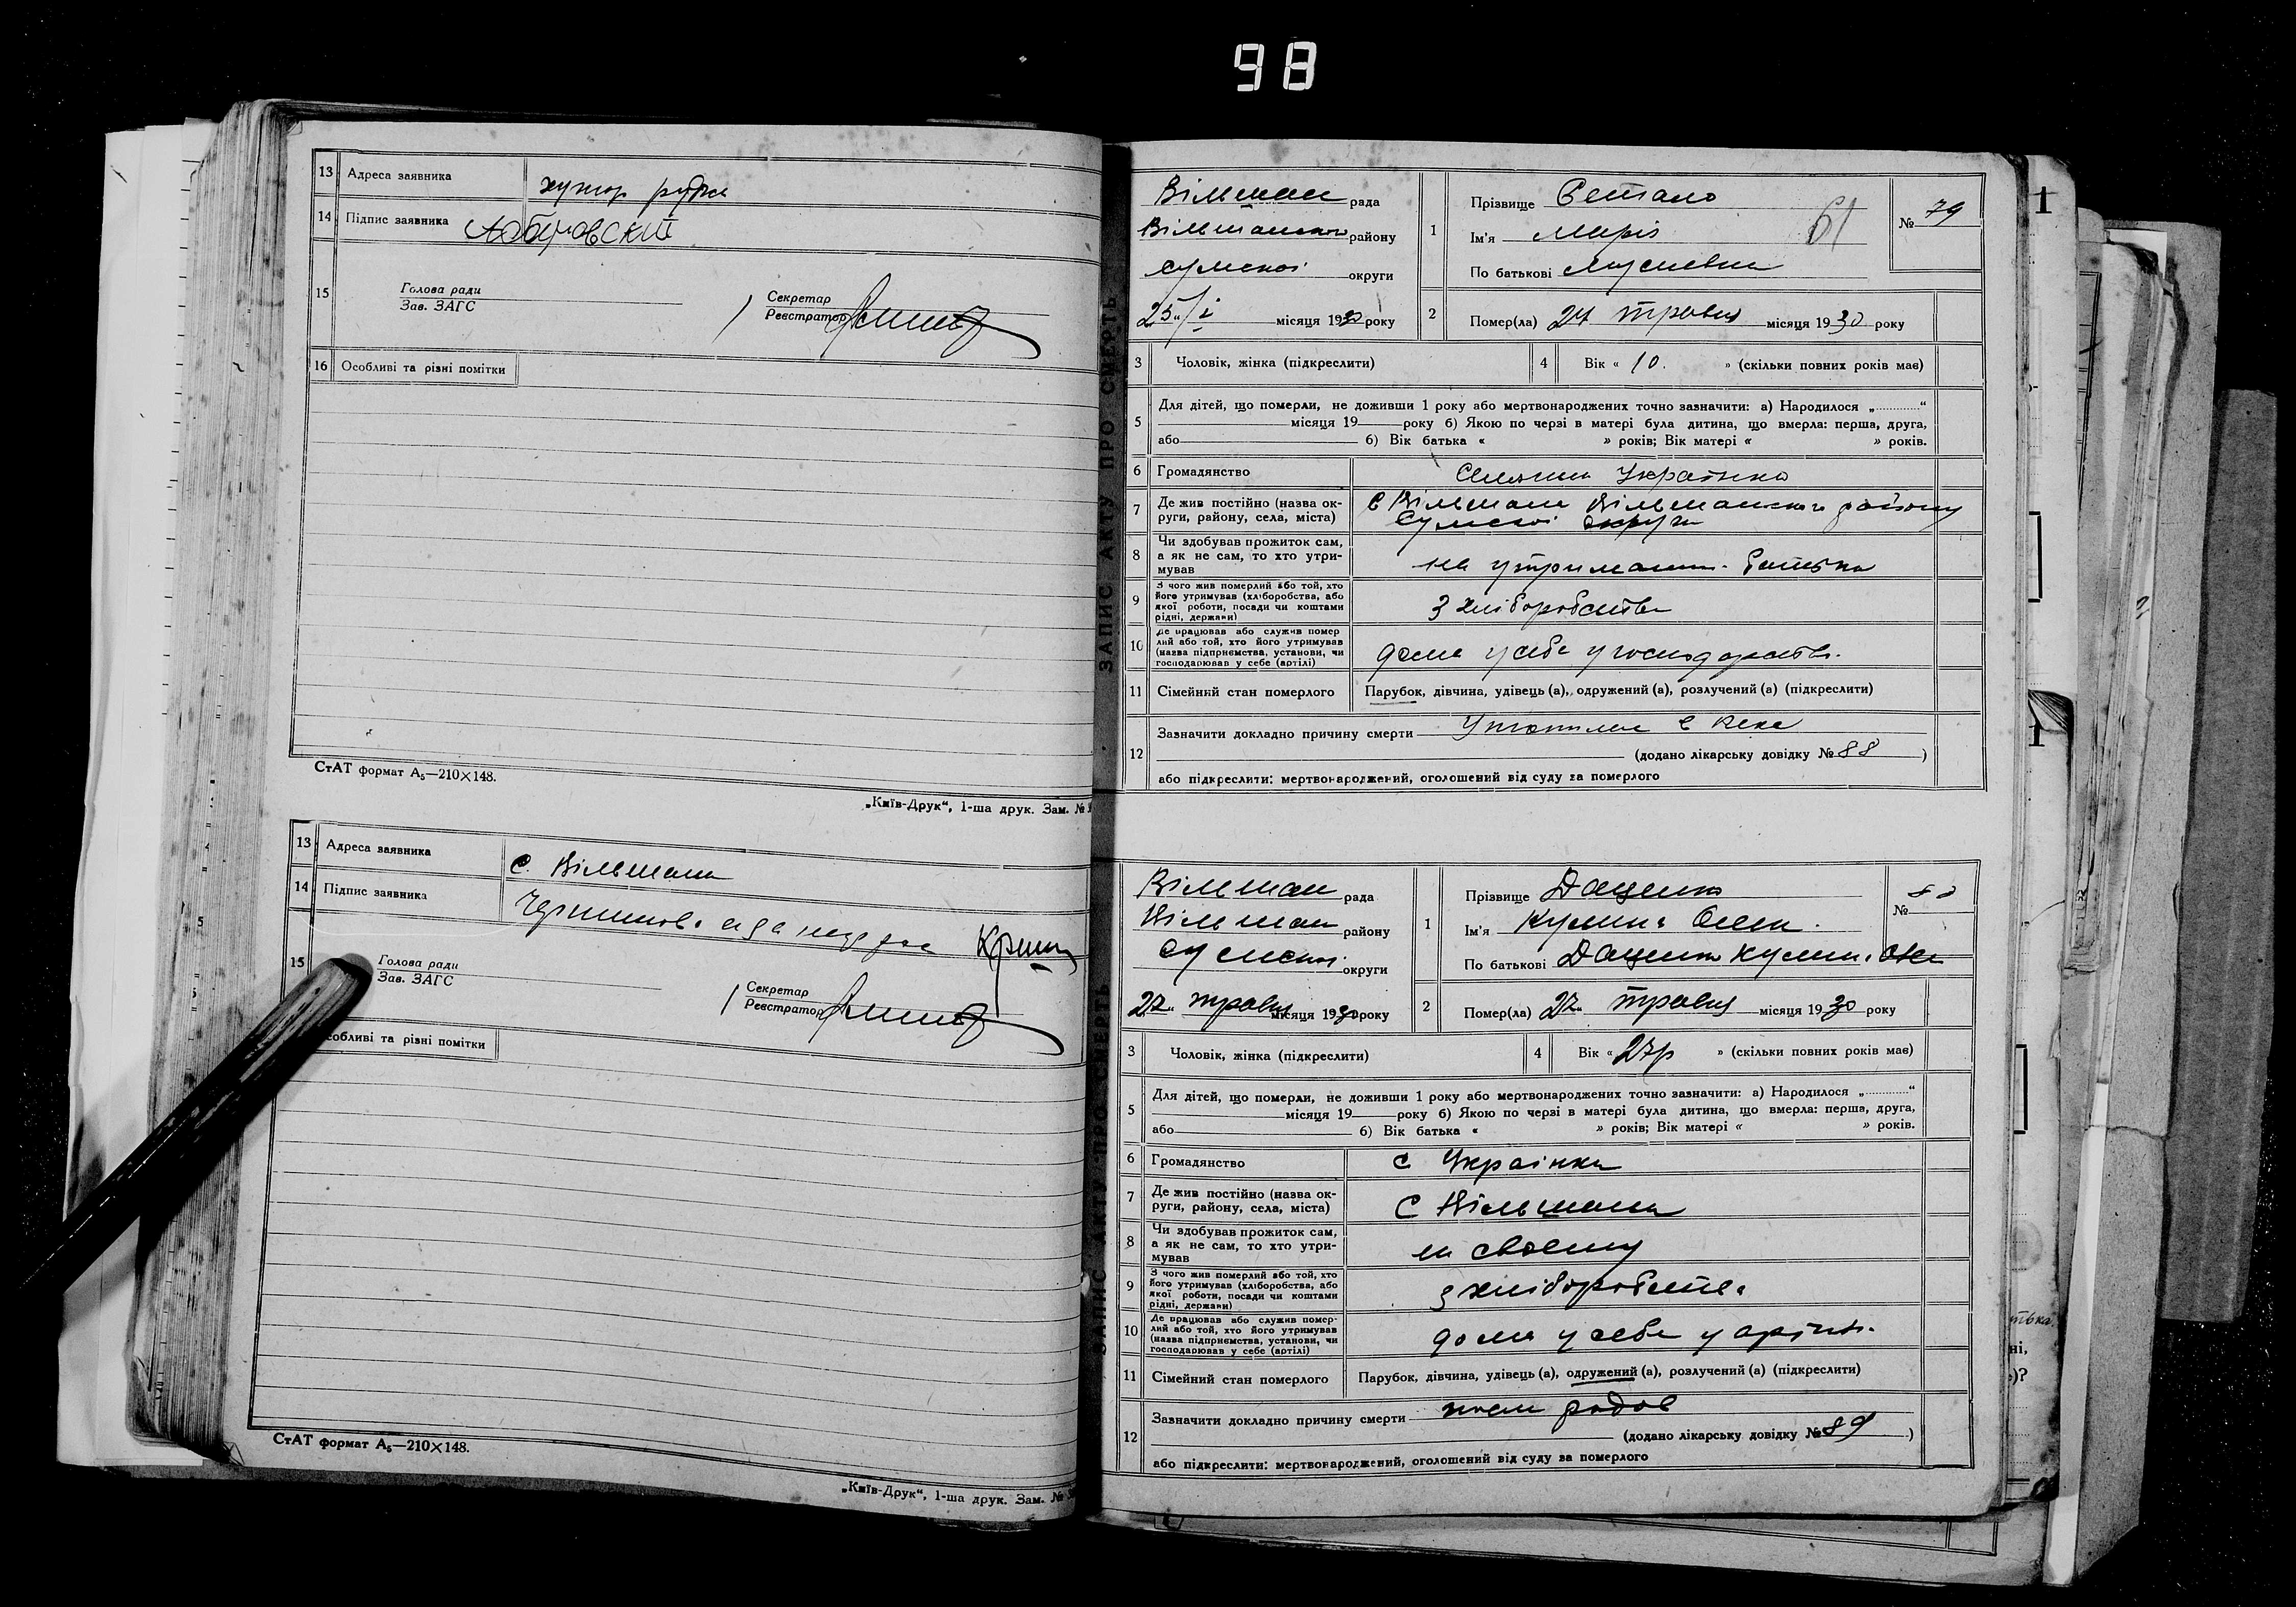 98
13 Адреса заявника хутор
14 Підпис заявника
15 Голова ради
Зав. ЗАГС
Секретар
Реєстратор
16 Особливі та різні помітки
СтАТ формат А₅—210×148.
„Київ-Друк“, 1-ша друк. Зам. №
13 Адреса заявника с. Вільшана
14 Підпис заявника
15 Голова ради
Зав. ЗАГС
Секретар
Реєстратор
собливі та різні помітки
СтАТ формат А₅—210×148.
„Київ-Друк“, 1-ша друк. Зам. №
ЗАПИС АКТУ ПРО СМЕРТЬ
Вільшан рада
Вільшанського району
Сумської округи
25 місяця 1930 року
1 Прізвище
Ім'я Марія 61
По батькові Мусиевна
№ 79
2 Помер(ла) 24 травня місяця 1930 року
3 Чоловік, жінка (підкреслити)
4 Вік « 10. » (скільки повних років має)
5 Для дітей, що померли, не доживши 1 року або мертвонароджених точно зазначити: а) Народилося „ “
місяця 19 року б) Якою по черзі в матері була дитина, що вмерла: перша, друга,
або б) Вік батька « » років; Вік матері « » років.
6 Громадянство Українка
7 Де жив постійно (назва ок-
руги, району, села, міста) с Вільшана Вільшанського району
Сумської округи
8 Чи здобував прожиток сам,
а як не сам, то хто утри-
мував на утриманні батька
9 З чого жив померлий або той, хто
його утримував (хліборобства, або
якої роботи, посади чи коштами
рідні, держави) з хліборобства
10 Де працював або служив помер
лий або той, хто його утримував
(назва підприємства, установи, чи
господарював у себе (артілі) дома у себе у господарстві.
11 Сімейний стан померлого Парубок, дівчина, удівець (а), одружений (а), розлучений (а) (підкреслити)
12 Зазначити докладно причину смерти Утопилась в
(додано лікарську довідку № 88 )
або підкреслити: мертвонароджений, оголошений від суду за померлого
ЗАПИС АКТУ ПРО СМЕРТЬ
Вільшан рада
Вільшан району
Сумської округи
27 травня місяця 1930 року
1 Прізвище Даценко
Ім'я
По батькові Даценко
№ 80
2 Помер(ла) 27 травня місяця 1930 року
3 Чоловік, жінка (підкреслити)
4 Вік « 27р » (скільки повних років має)
5 Для дітей, що померли, не доживши 1 року або мертвонароджених точно зазначити: а) Народилося „ “
місяця 19 року б) Якою по черзі в матері була дитина, що вмерла: перша, друга,
або б) Вік батька « » років; Вік матері « » років.
6 Громадянство с Українка
7 Де жив постійно (назва ок-
руги, району, села, міста) с Вільшана
8 Чи здобував прожиток сам,
а як не сам, то хто утри-
мував на своєму
9 З чого жив померлий або той, хто
його утримував (хліборобства, або
якої роботи, посади чи коштами
рідні, держави) з хліборобства
10 Де працював або служив помер-
лий або той, хто його утримував
(назва підприємства, установи, чи
господарював у себе (артілі) дома у себе у артілі.
11 Сімейний стан померлого Парубок, дівчина, удівець (а), одружений (а), розлучений (а) (підкреслити)
12 Зазначити докладно причину смерти после родов
(додано лікарську довідку № 89 )
або підкреслити: мертвонароджений, оголошений від суду за померлого